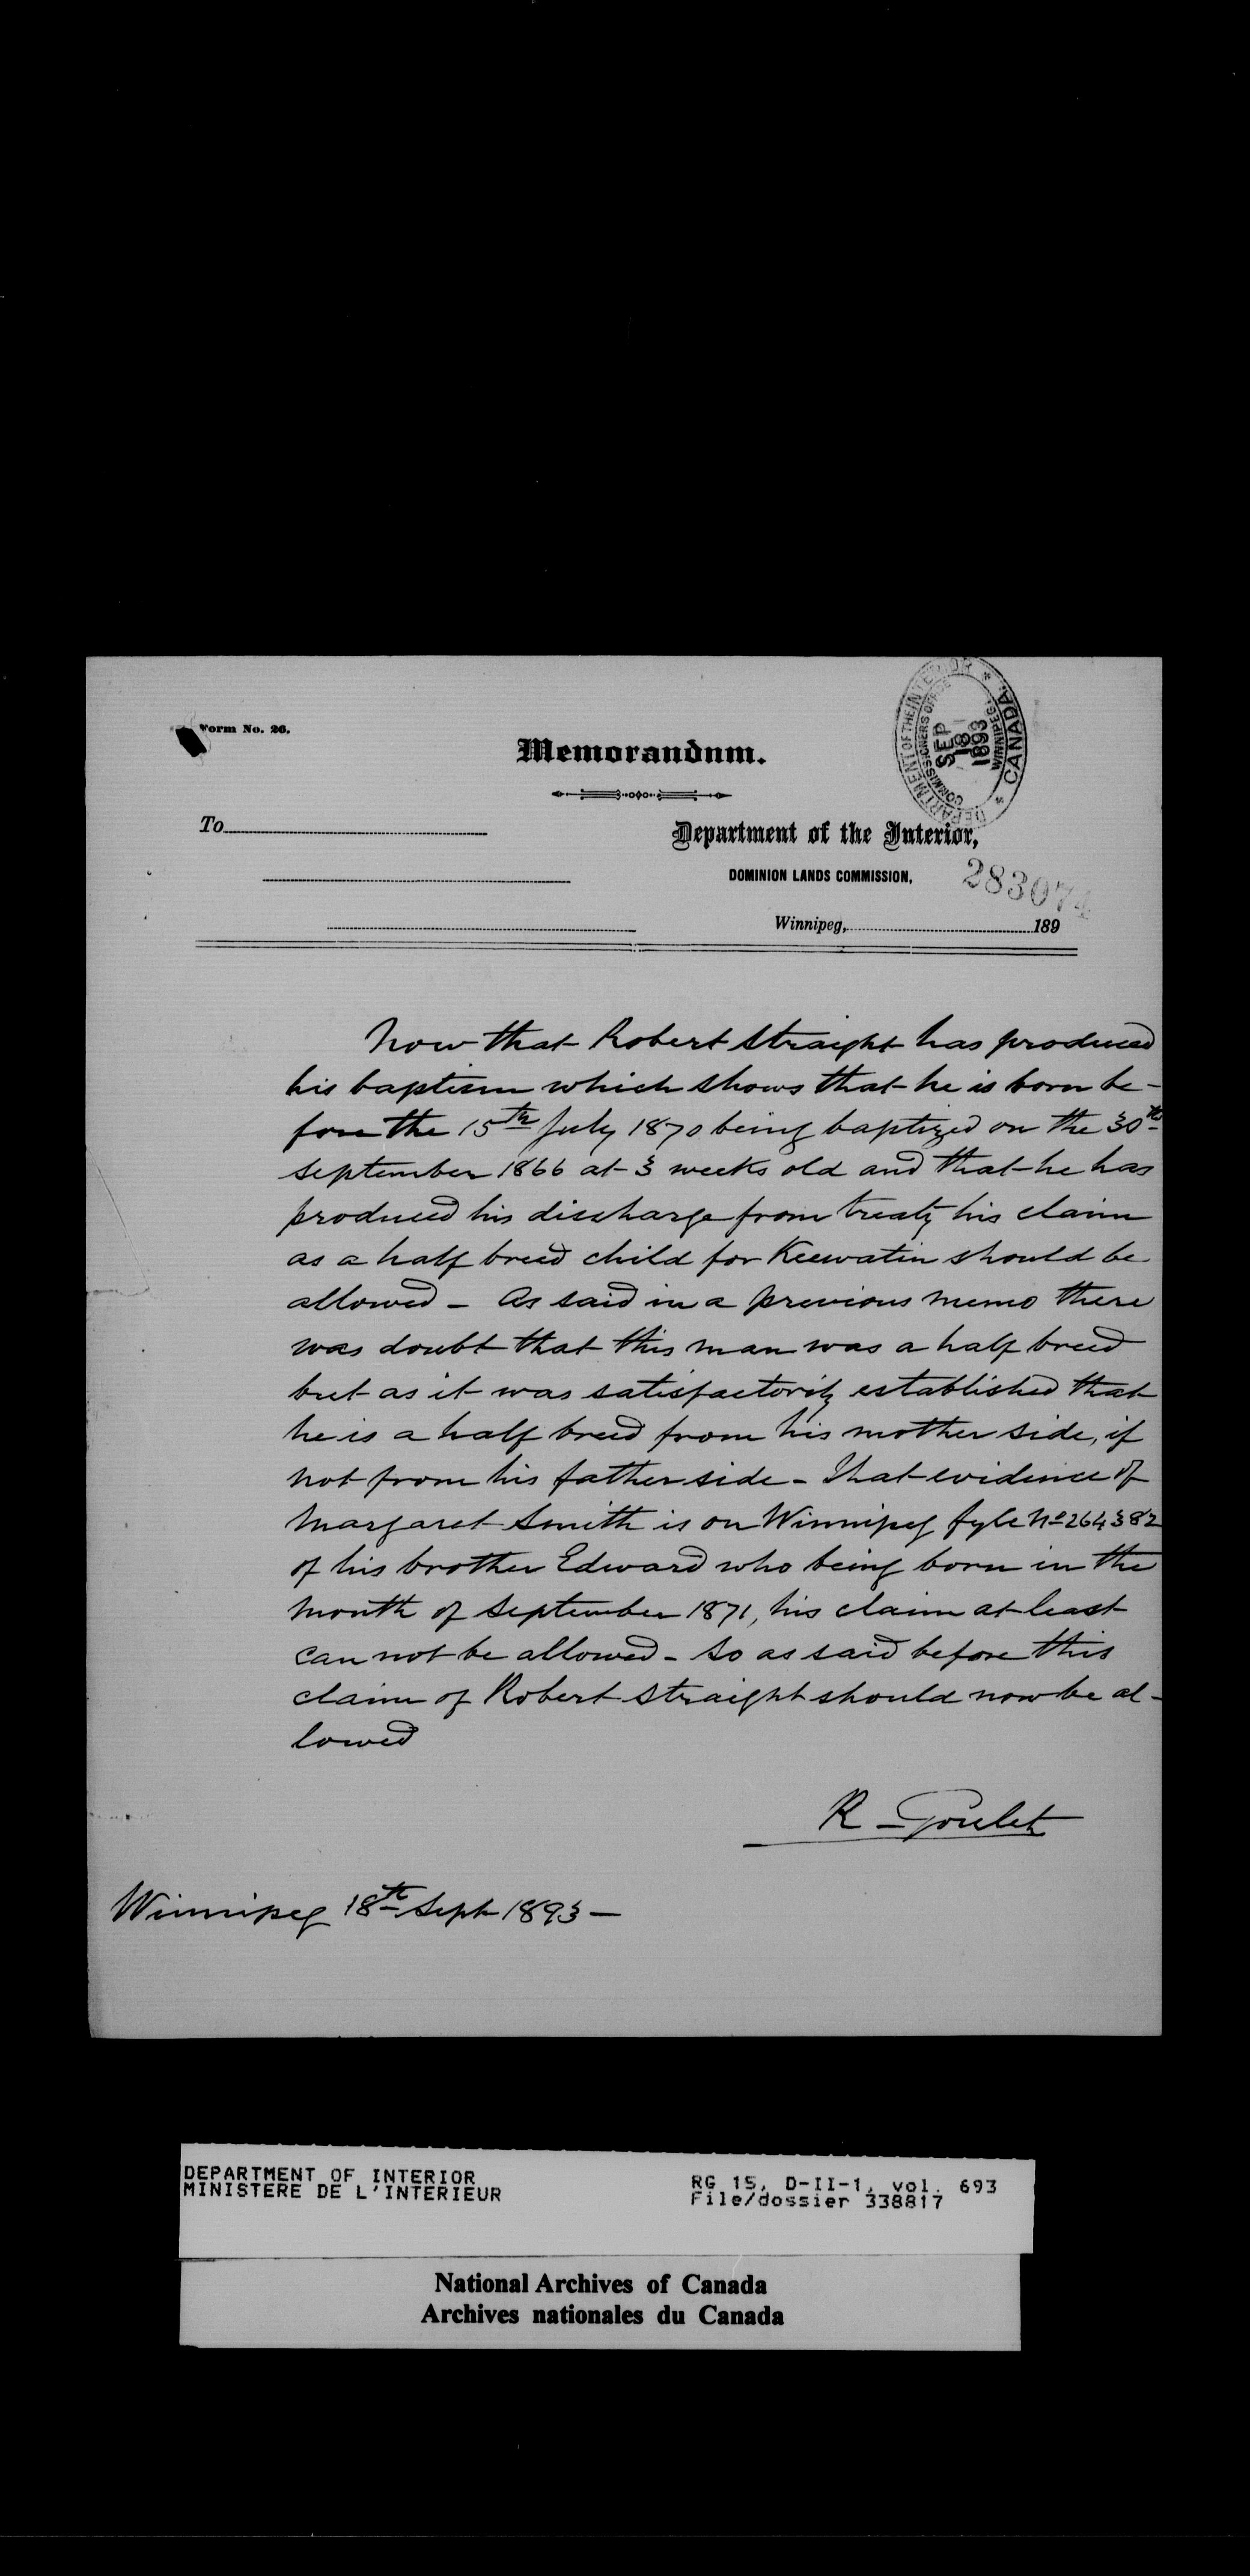 Form No. 26.
Memorandum.
DEPARTMENT OF THE INTERIOR * CANADA *
COMMISSIONERS OFFICE WINNIPEG.
SEP
18
1893
To
Department of the Interior,
DOMINION LANDS COMMISSION,
283074
Winnipeg, 189
Now that Robert Straight has produced
his baptism which shows that he is born be-
fore the 15th July 1870 being baptized on the 30th
September 1866 at 3 weeks old and that he has
produced his discharge from treaty his claim
as a half breed child for Keewatin should be
allowed - As said in a previous memo there
was doubt that this man was a half breed
but as it was satisfactorily established that
he is a half breed from his mother side, if
not from his father side - That evidence of
Margaret Smith is on Winnipeg fyle No 264382
of his brother Edward who being born in the
month of September 1871, his claim at least
can not be allowed - So as said before this
claim of Robert Straight should now be al-
lowed
R - Goulet
Winnipeg 18th Sept 1893 -
DEPARTMENT OF INTERIOR
MINISTERE DE L'INTERIEUR
RG 15, D-II-1, vol. 693
File/dossier 338817
National Archives of Canada
Archives nationales du Canada